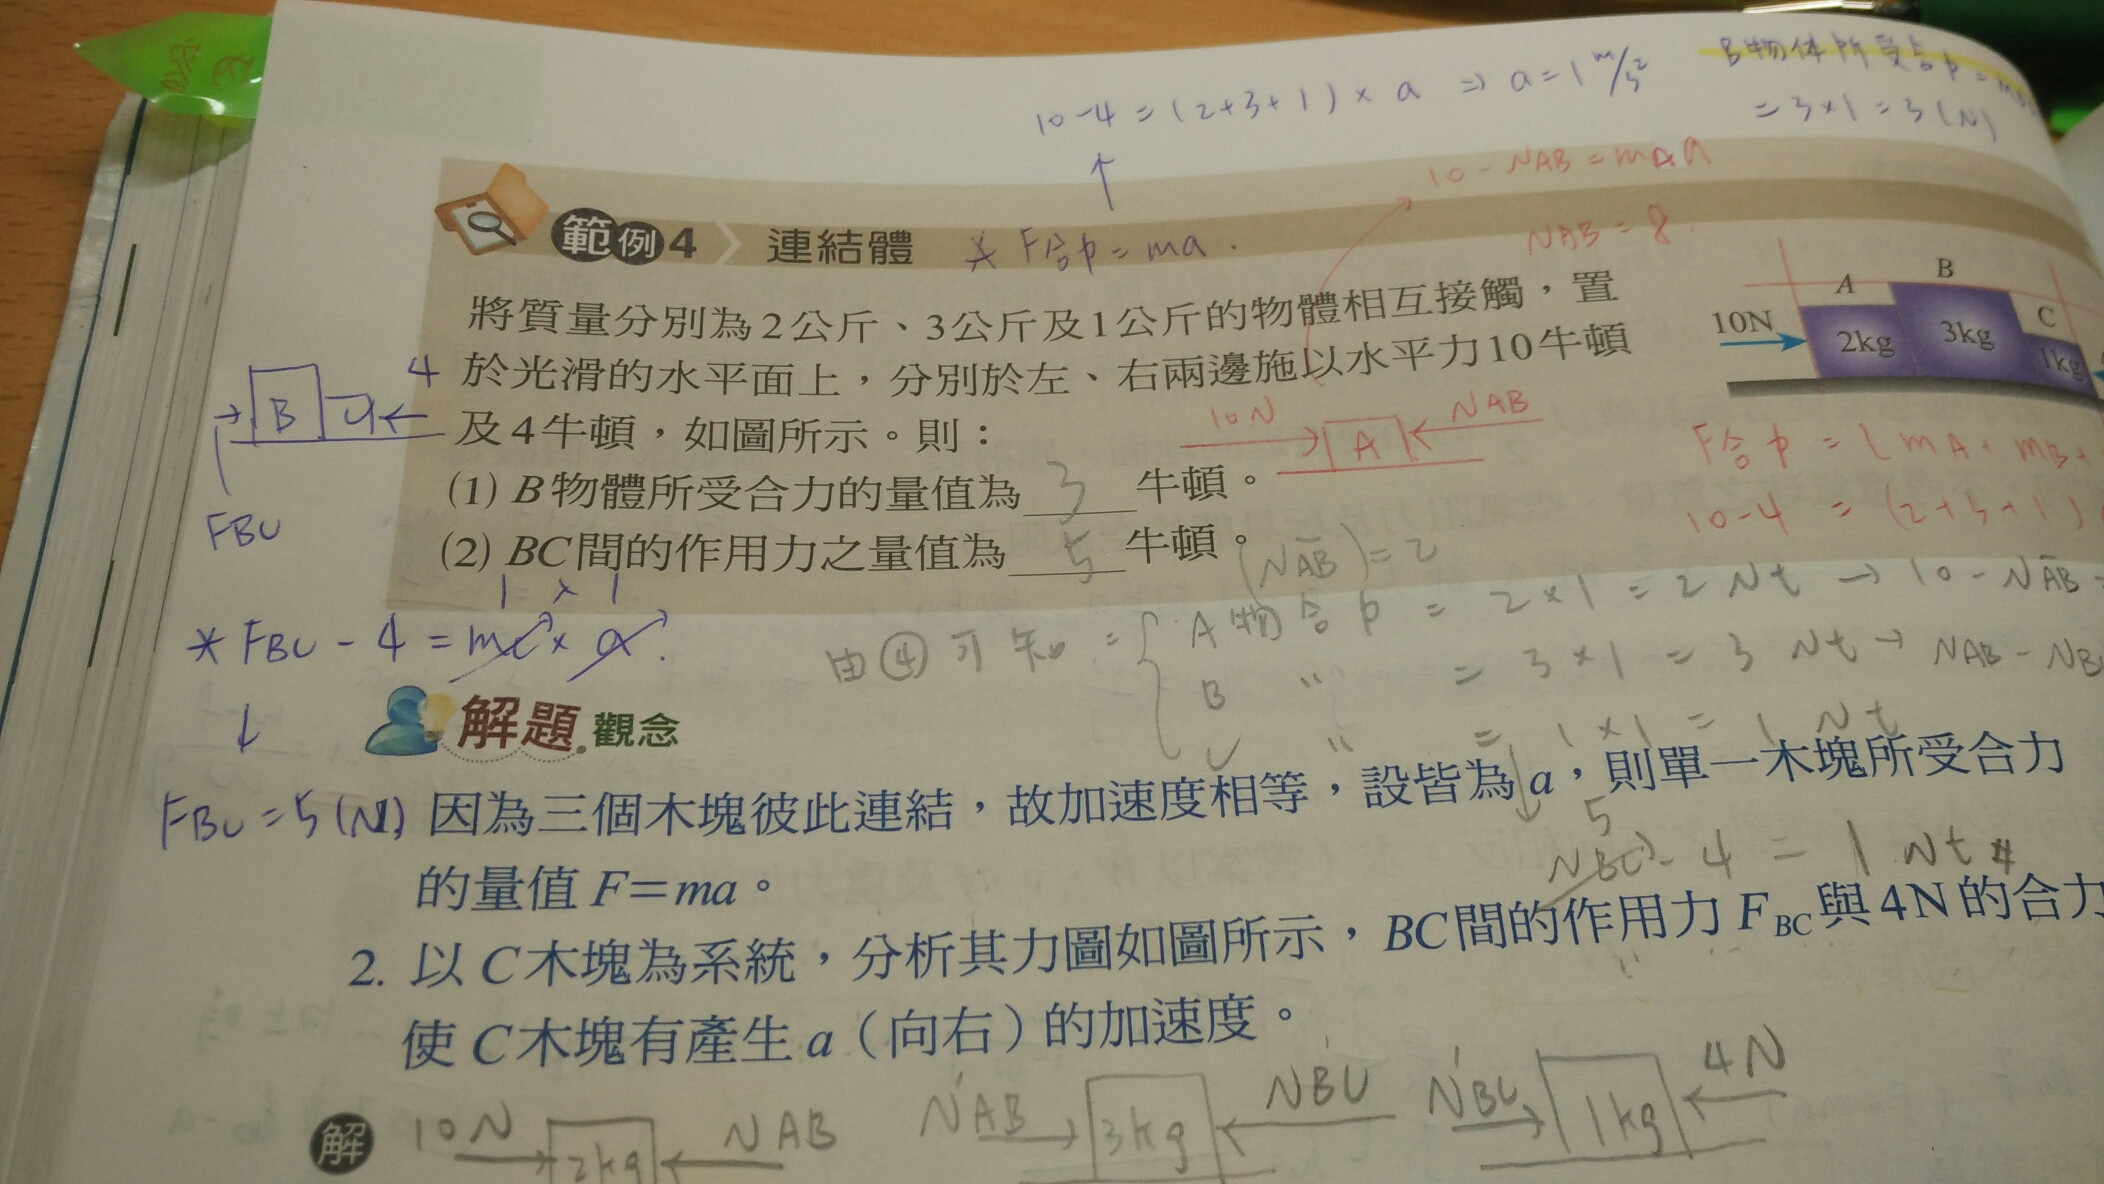 10-4=(2+3+1)×a ⇒ a=1 m/s²
B物体所受合力=
=3×1=3(N)
↑
10-NAB=mAa
NAB=8.
範例4 連結體
* F合力=ma.
將質量分別為2公斤、3公斤及1公斤的物體相互接觸，置
於光滑的水平面上，分別於左、右兩邊施以水平力10牛頓
及4牛頓，如圖所示。則：
(1) B物體所受合力的量值為 3 牛頓。
(2) BC間的作用力之量值為 5 牛頓。
A
B
C
10N
2kg
3kg
1kg
10N
A
NAB
F合力=(mA+mB+
10-4=(2+3+1)
B
4
FBC
1×1
* FBC-4=mc×a.
↓
FBC=5(N)
(NAB)=2
由④可知={A物合力=2×1=2Nt→10-NAB
B〃=3×1=3Nt→NAB-NB
C〃=1×1=1Nt
5
NBC-4=1Nt#
解題觀念
因為三個木塊彼此連結，故加速度相等，設皆為a，則單一木塊所受合力
的量值F=ma。
2. 以C木塊為系統，分析其力圖如圖所示，BC間的作用力FBC與4N的合力
使C木塊有產生a（向右）的加速度。
解
10N
2kg
NAB
N'AB
3kg
NBC
N'BC
1kg
4N